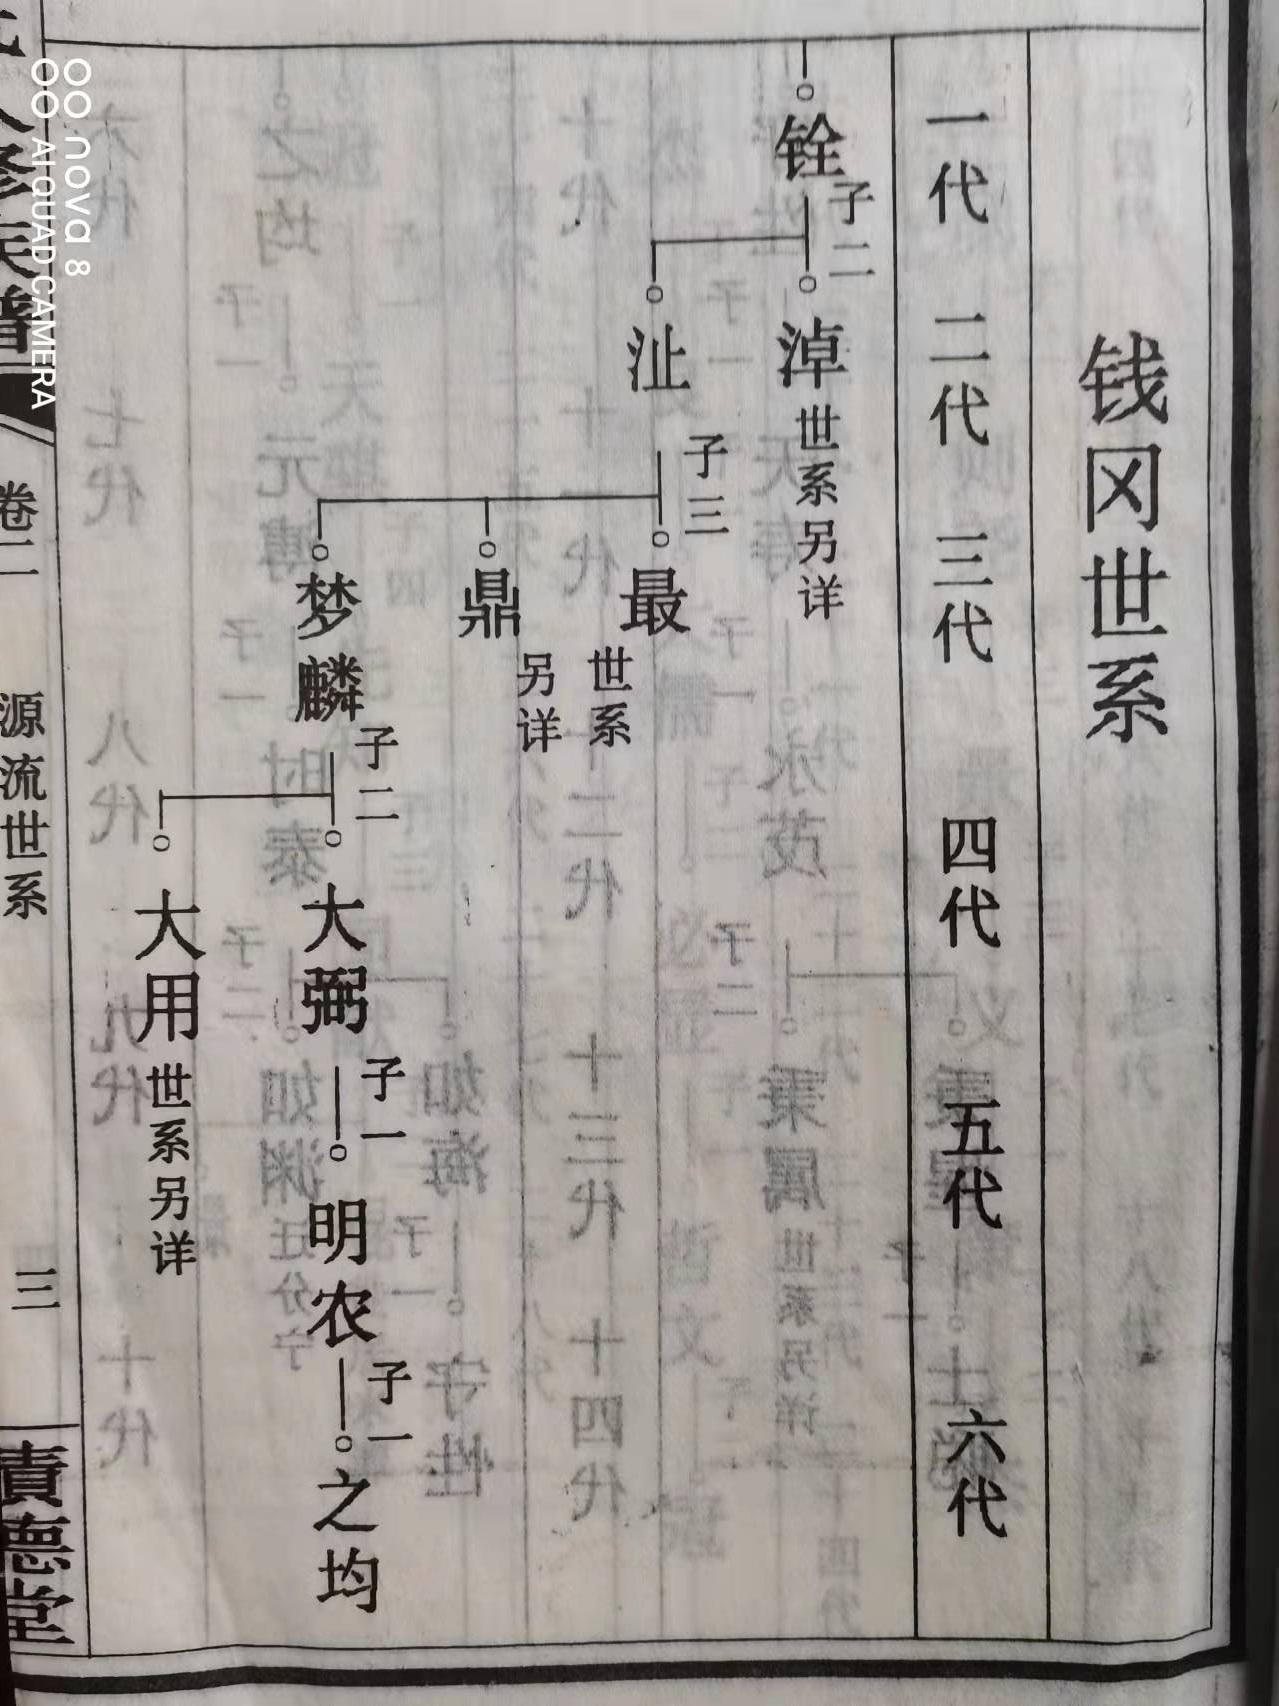 钱冈世系
一代 二代 三代 四代 五代 六代
铨 子二
淖 世系另详
沚 子三
最 世系
鼎 另详
梦麟 子二
大弼 子一
明农 子一
之均
大用 世系另详
卷二 源流世系 三
责德堂
nova 8
AI QUAD CAMERA